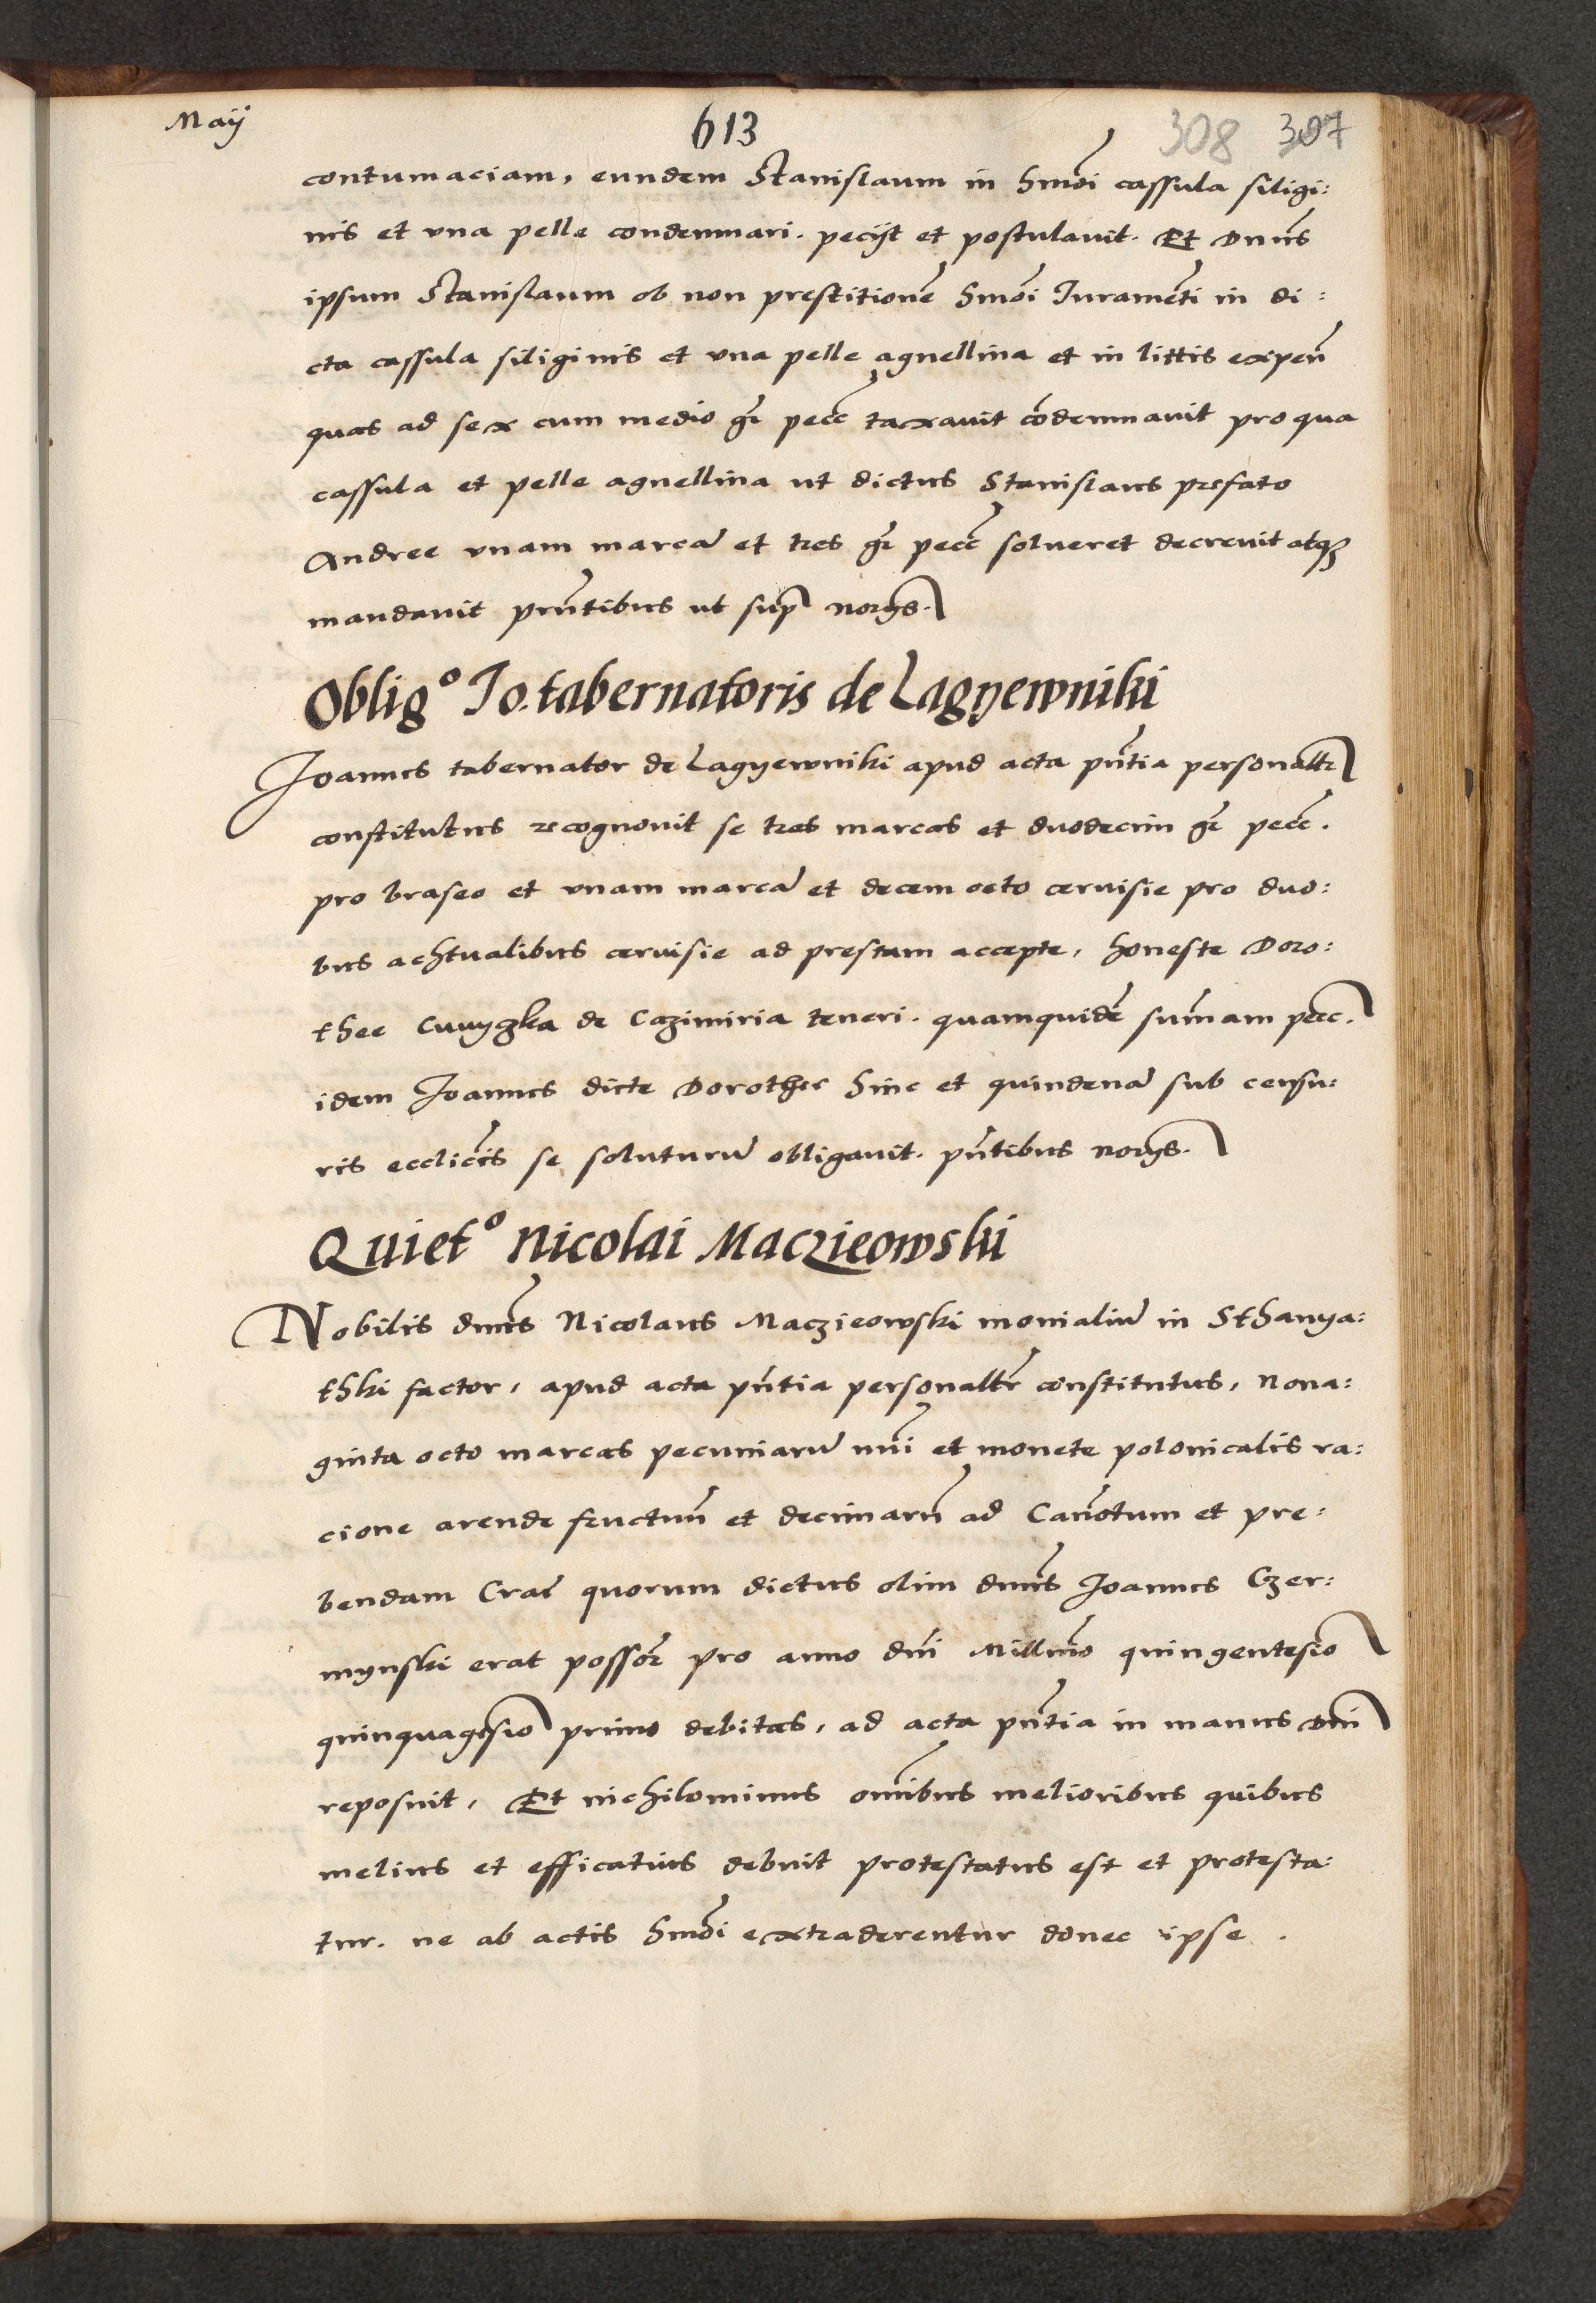 Maÿ
613
308 307
contumaciam, eundem Stanislaum in hmoi cassula siligi:
nis et vna pelle condemnari. pecijt et postulavit. Et Dnus
ipsum Stanislaum ob non prestitionē hmoi Iuramēti in di:
cta cassula siliginis et vna pelle agnellina et in littis expen̄
quas ad sex cum medio gr̄ pecc̄ taxavit cōdemnavit pro qua
cassula et pelle agnellina ut dictus Stanislaus prefato
Andree vnam marcā et tres gr̄ pecc̄ solueret decrevit atqꝫ
mandavit pn̄tibus ut supᵃ norijs.
Obligᵒ Jo. tabernatoris de Lagyewniki
Joannes tabernator de Lagyewniki apud acta pn̄tia personaltr
constitutus recognovit se tres marcas et duodecim gr̄ pecc̄.
pro braseo et vnam marcā et decem octo cervisie pro duo:
bus achtualibus cervisie ad prestam accepte, honeste Doro:
thee Cuvygka de Cazimiria teneri. quamquidē sum̄am pecc̄.
idem Joannes dicte Dorothee hinc et quindenā sub censu:
ris ecclicīs se soluturū obligavit. pn̄tibus norijs.
Quietᵒ Nicolai Maczieowski
Nobilis dnūs Nicolaus Maczieowski monialiū in Sthanya:
thki factor, apud acta pn̄tia personaltr̄ constitutus, nona:
ginta octo marcas pecuniarū nūi et monete polonicalis ra:
cione arende fructuū et decimarū ad Can̄otum et pre:
bendam Crac̄ quorum dictus olim dnūs Joannes Czer:
mynski erat possōr pro anno dn̄i Millm̄o quingentesīo
quinquagesīo primo debitas, ad acta pn̄tia in manus Dn̄i
reposuit, Et nichilominus om̄ibus melioribus quibus
melius et efficatius debuit protestatus est et protesta:
tur. ne ab actis hmōi extraderentur donec ipse.